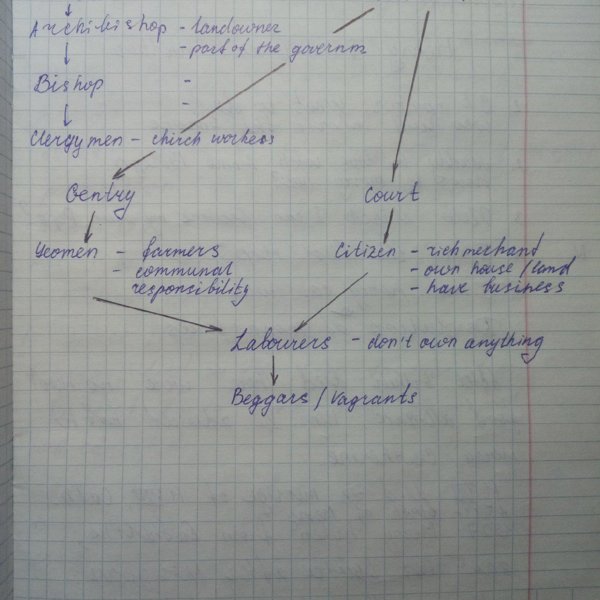 Archibishop - landowner
- part of the governm
Bishop -
-
Clergymen - chirch workers
Gentry
Court
Yeomen - farmers
- communal
responsibility
Citizen - rich merchand
- own house / land
- have business
Labourers - don't own anything
Beggars / Vagrants